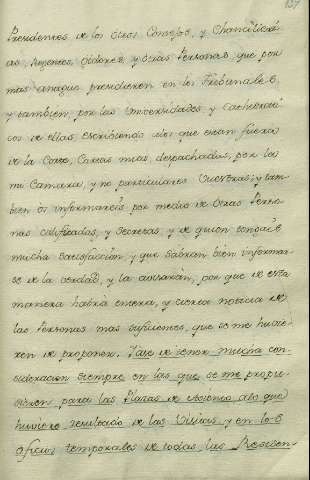 137
Presidentes de los otros Consejos, y Chancilleri-
as, Regentes, Oidores, y otras Personas, que por
mas antiguo presidieren en los Tribunales,
y tambien por las Universidades y Cathedrati-
cos de ellas, escribiendo a los que están fuera
de la Corte, Cartas mias despachadas, por la
mi Camara, y no particulares vuestras; y tam-
bien os informareis por medio de otras Perso-
nas calificadas, y secretas, y de quien tengais
mucha satisfacción, y que sabrán bien informar-
se de la verdad, y la avisarán, por que de esta
manera habrá entera, y cierta noticia de
las Personas mas suficientes, que se me huvie-
ren de proponer. Hase de tener mucha con-
sideracion siempre en las que se me propu-
sieren para las Plazas de Asiento, a lo que
huviere resultado de las Visitas, y en los
oficios temporales de todas las Residen-